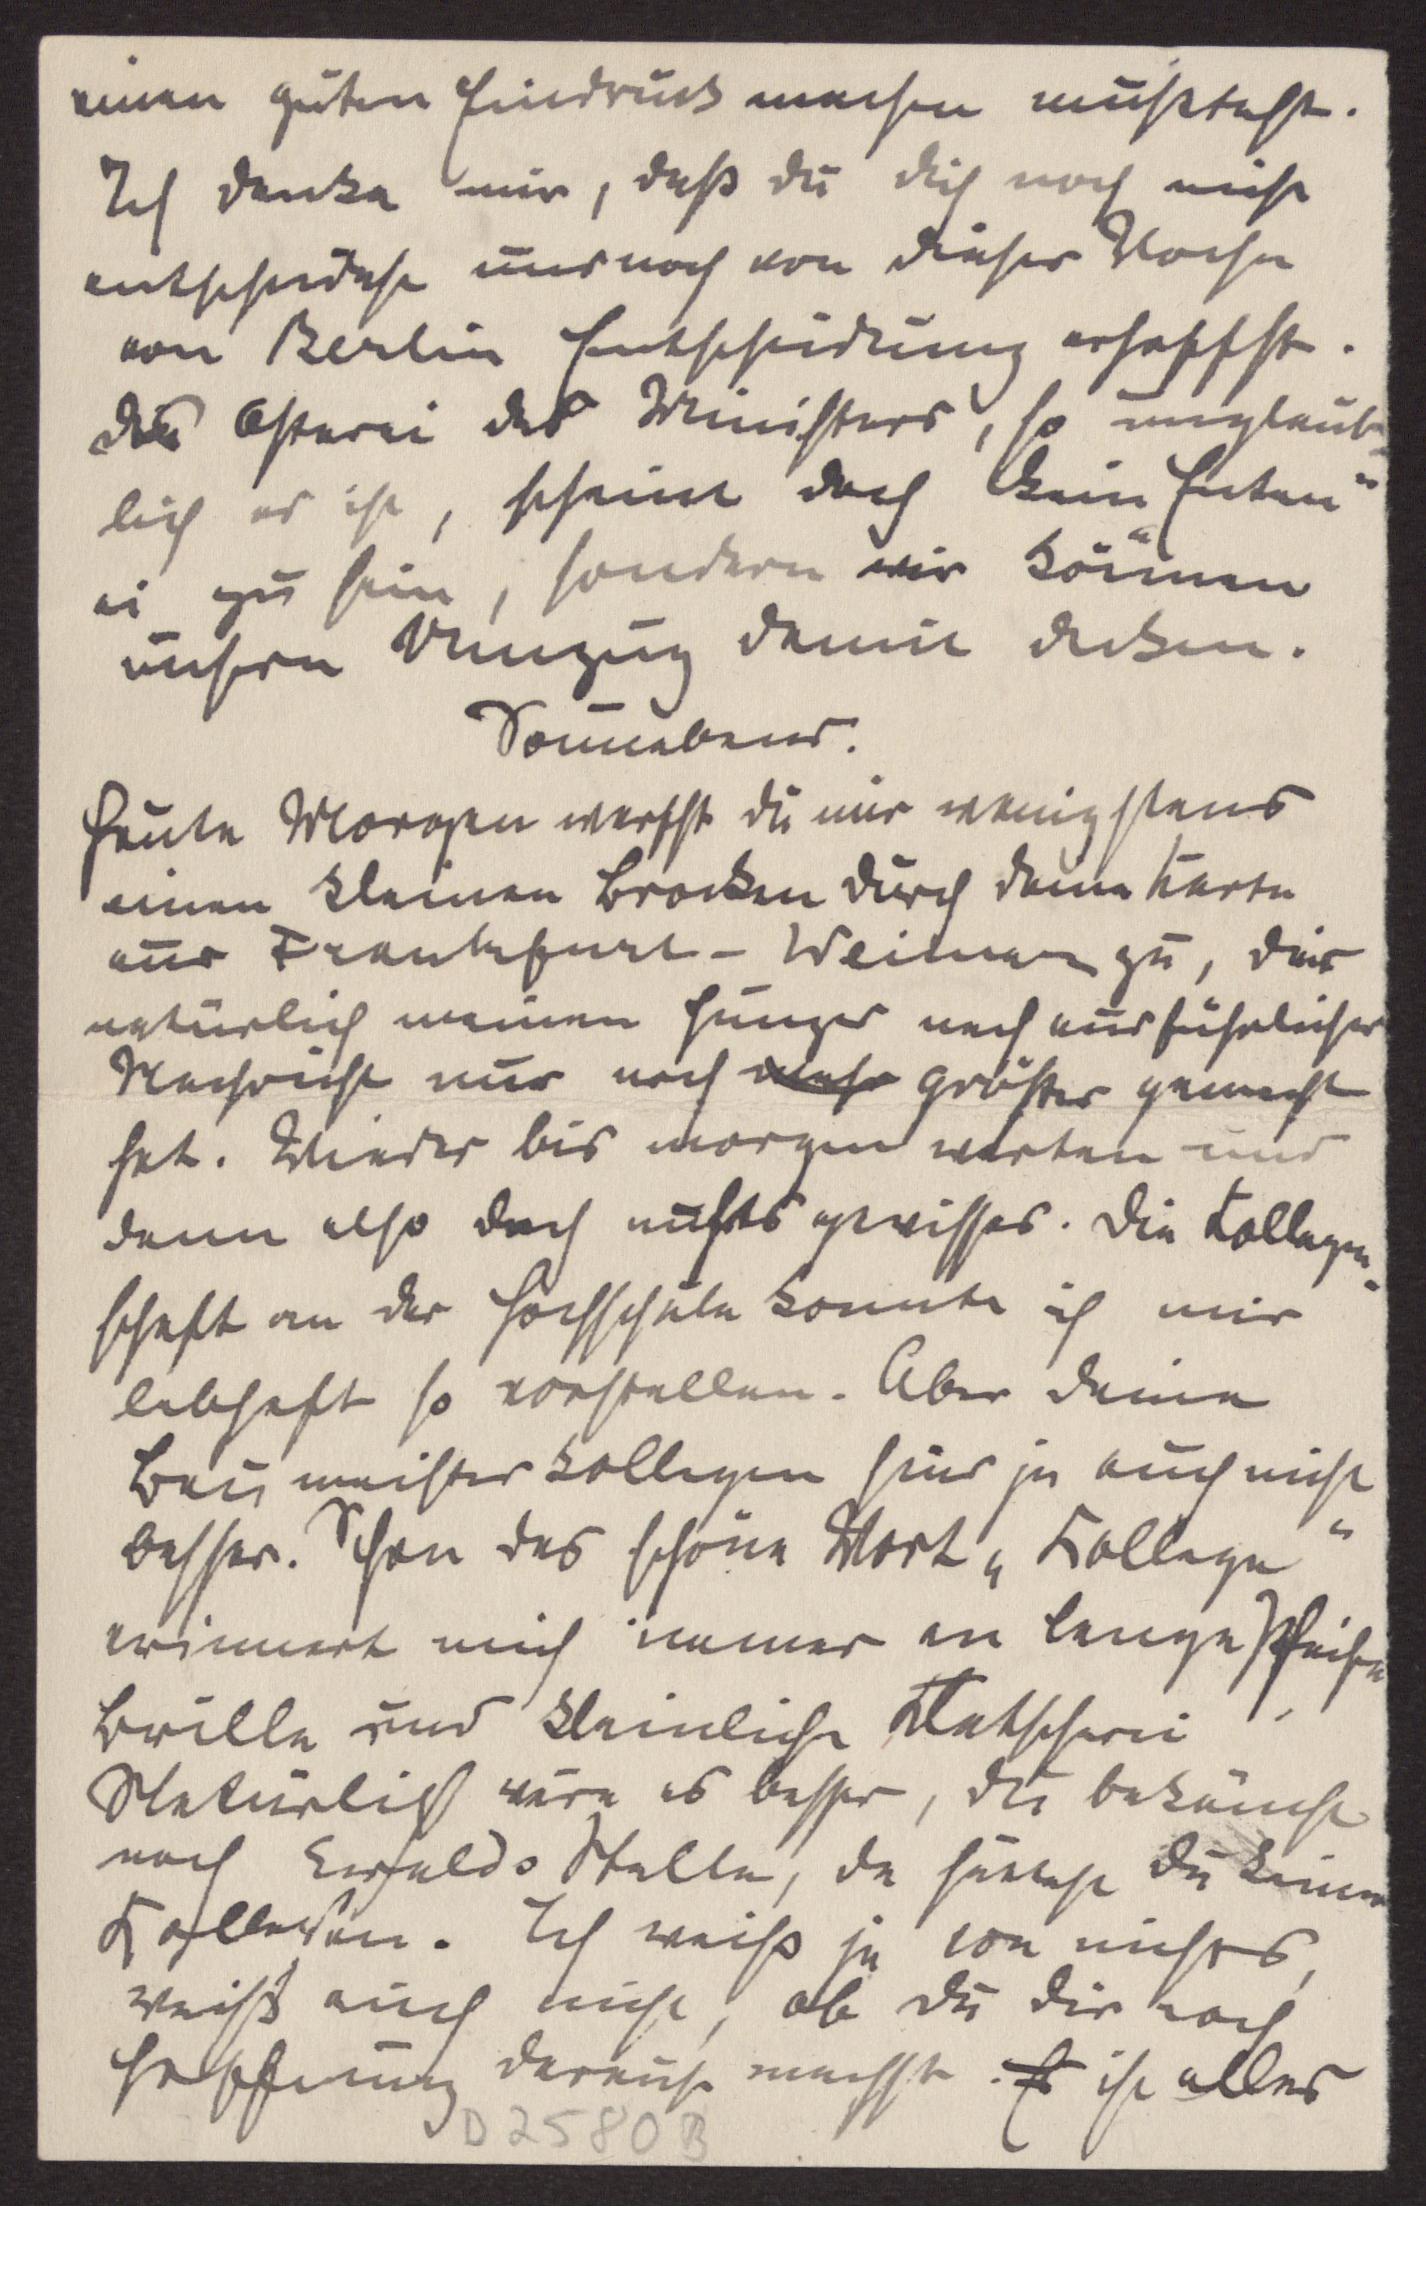 einen guten Eindruck machen mußtest.
Ich denke mir, daß du dich noch nicht
entscheidest und noch von dieser Woche
von Berlin Entscheidung erhoffst.
Das Osterei des Ministers, so unglaub-
lich es ist, scheint doch kein „Enten"
ei zu sein, sondern wir können
unsern Umzug damit decken.
Sonnabend.
Heute Morgen warfst du mir wenigstens
einen kleinen Brocken durch deine Karte
aus Frankfurt - Weimar zu, die
natürlich meinen Hunger nach ausführlicher
Nachricht nur noch mehr größer gemacht
hat. Wieder bis morgen warten und
dann also doch nichts gewisses. Die Kollegen-
schaft an der Hochschule konnte ich mir
lebhaft so vorstellen. Aber deine
Baumeisterkollegen sind ja auch nicht
besser. Schon das schöne Wort „Kollege"
erinnert mich immer an lange Pfeife
Brille und kleinliche Klatscherei
Natürlich wäre es besser, du bekämst
noch Stelle, da hättest du keine
Kollegen. Ich weiß ja von nichts,
weiß auch nicht, ob du dir noch
Hoffnung darauf machst. Es ist alles
D 2580 B